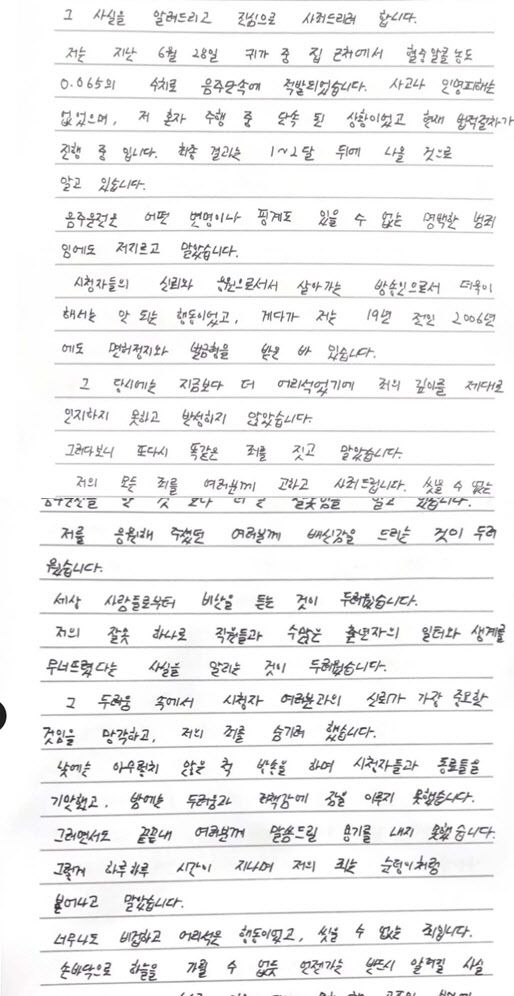 그 사실을 알려드리고 진심으로 사죄드리려 합니다.
저는 지난 6월 28일 귀가 중 집 근처에서 혈중알콜농도
0.065의 수치로 음주단속에 적발되었습니다. 사고나 인명피해는
없었으며, 저 혼자 주행 중 단속 된 상황이었고 현재 법적절차가
진행 중 입니다. 최종 결과는 1~2달 뒤에 나올 것으로
알고 있습니다.
음주운전은 어떤 변명이나 핑계도 있을 수 없는 명백한 범죄
임에도 저지르고 말았습니다.
시청자들의 신뢰와 응원으로서서 살아가는 방송인으로서 더욱이
해서는 안 되는 행동이었고, 게다가 저는 19년 전인 2006년
에도 면허정지와 벌금형을 받은 바 있습니다.
그 당시에는 지금보다 더 어리석었기에 죄의 깊이를 제대로
인지하지 못하고 반성하지 않았습니다.
그러다보니 또다시 똑같은 죄를 짓고 말았습니다.
저의 모든 죄를 여러분께 고하고 사죄드립니다. 씻을 수 없는
저를 응원해 주셨던 여러분께 배신감을 드리는 것이 두려
웠습니다.
세상 사람들로부터 비난을 듣는 것이 두려웠습니다.
저의 잘못 하나로 직원들과 수많은 출연자의 일터와 생계를
무너뜨렸다는 사실을 알리는 것이 두려웠습니다.
그 두려움 속에서 시청자 여러분과의 신뢰가 가장 중요한
것임을 망각하고, 저의 죄를 숨기려 했습니다.
낮에는 아무렇지 않은 척 방송을 하며 시청자들과 동료들을
기만했고, 밤에는 두려움과 죄책감에 잠을 이루지 못했습니다.
그러면서도 끝끝내 여러분께 말씀드릴 용기를 내지 못했습니다.
그렇게 하루하루 시간이 지나며 저의 죄는 눈덩이처럼
불어나고 말았습니다.
너무나도 비겁하고 어리석은 행동이었고, 씻을 수 없는 죄입니다.
손바닥으로 하늘을 가릴 수 없듯 언젠가는 반드시 알려질 사실